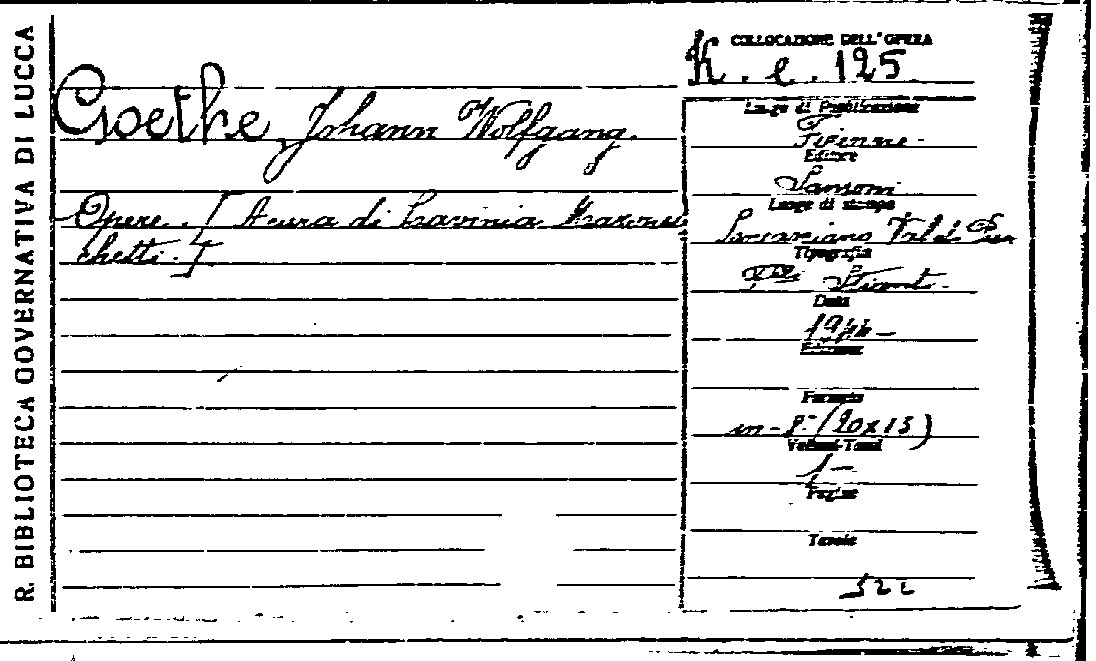 R. BIBLIOTECA GOVERNATIVA DI LUCCA
COLLOCAZIONE DELL'OPERA
K. e. 125
Goethe Johann Wolfgang.
Opere. [A cura di Lavinia Mazzuc
chetti.]
Luogo di Pubblicazione
Firenze
Editore
Sansoni
Luogo di stampa
Sancasciano Val di Pesa
Tipografia
Stianti
Data
1944
Edizione
Formato
in-8° (20x13)
Volumi-Tomi
1
Pagine
Tavole